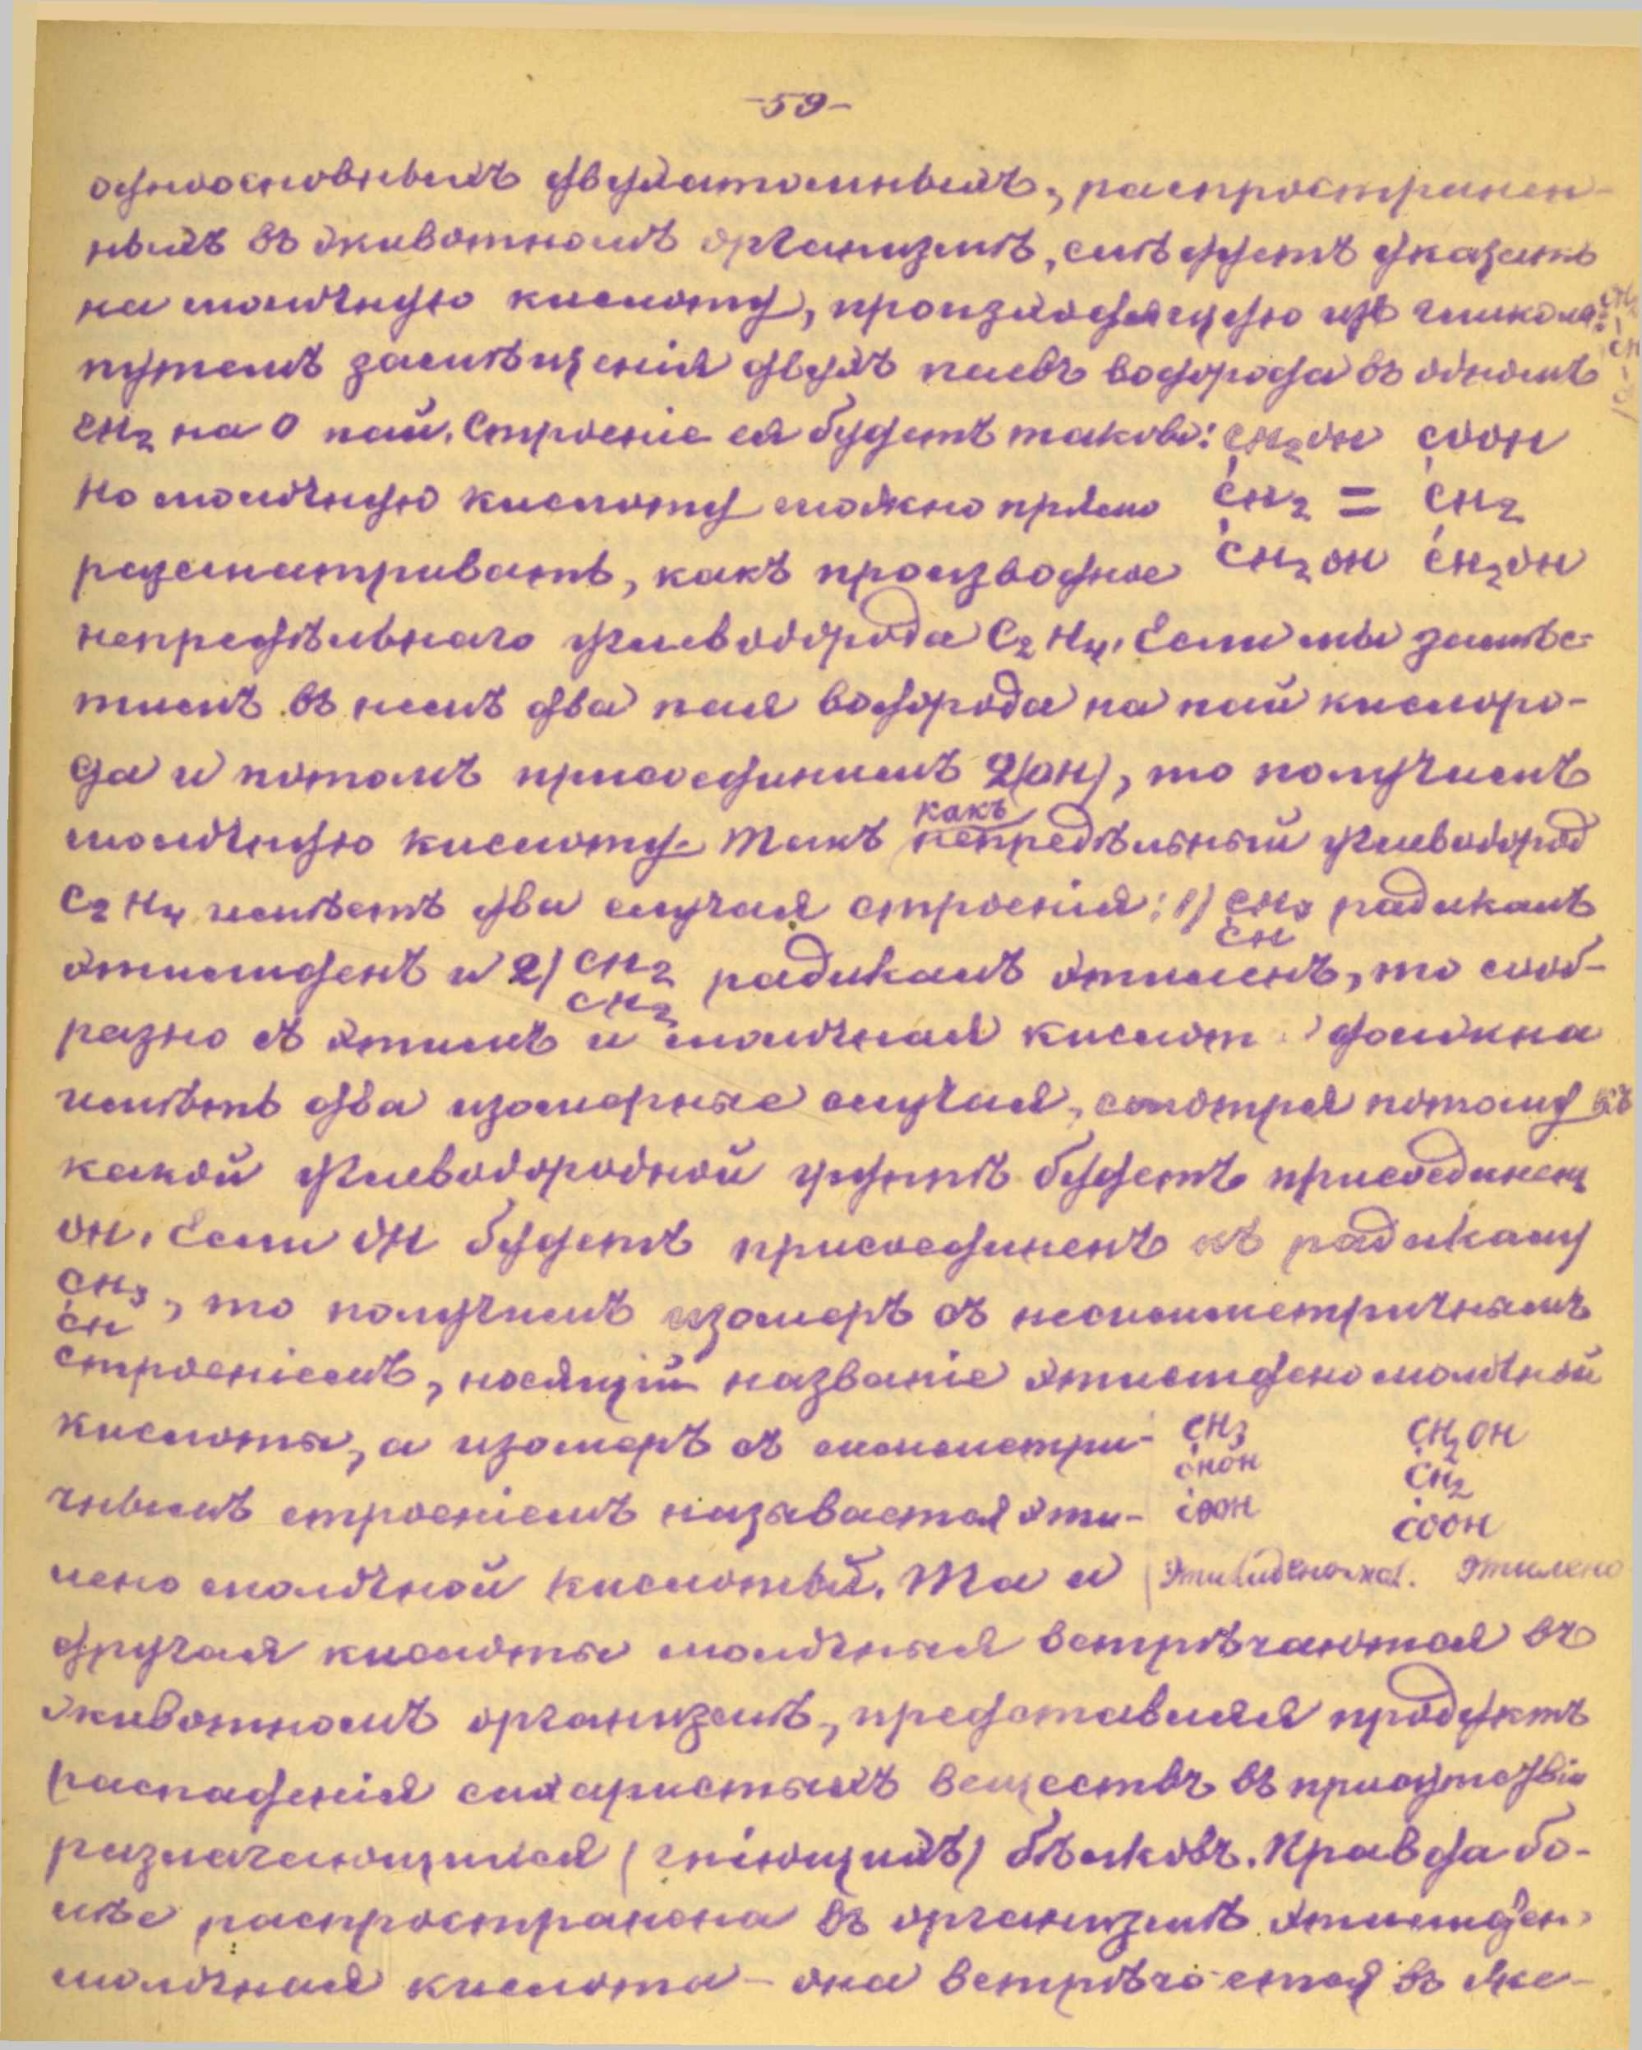 -59-
одноосновныхъ двухатомныхъ, распространен-
ныхъ въ животномъ организмѣ, слѣдуетъ указать
на молочную кислоту, происходящую изъ гликоля:
путемъ замѣщенія двухъ паевъ водорода въ одномъ
CH₂ на O пай. Строеніе ея будетъ таково: CH₂OH COOH
Но молочную кислоту можно прямо CH₂ = CH₂
разсматривать, какъ производное CH₂OH CH₂OH
непредѣльнаго углеводорода C₂H₄. Если мы замѣс-
тимъ въ немъ два пая водорода на пай кислоро-
да и потомъ присоединимъ 2(OH), то получимъ
какъ
молочную кислоту. Такъ непредѣльный углеводород
C₂H₄ имѣетъ два случая строенія: 1) CH₃ радикалъ
CH
этилиденъ и 2) CH₂ радикалъ этиленъ, то сооб-
CH₂
разно съ этимъ и молочная кислот должна
имѣть два изомерные случая, смотря потому къ
какой углеводородной группѣ будетъ присоединенъ
OH. Если OH будетъ присоединенъ къ радикалу
CH₃, то получимъ изомеръ съ несимметричнымъ
CH
строеніемъ, носящій названіе этилидено молочной
кислоты, а изомеръ съ симметри- CH₃ CH₂OH
CHOH CH₂
чнымъ строеніемъ называется эти- COOH COOH
лено молочной кислотой. Та и Этилидено-мол. Этилено
другая кислоты молочныя встрѣчаются въ
животномъ организмѣ, представляя продуктъ
распаденія сахаристыхъ веществъ въ присутствіи
разлагающихся (гніющихъ) бѣлковъ. Правда бо-
лѣе распространена въ организмѣ этилиден-
молочная кислота – она встрѣчается въ же-